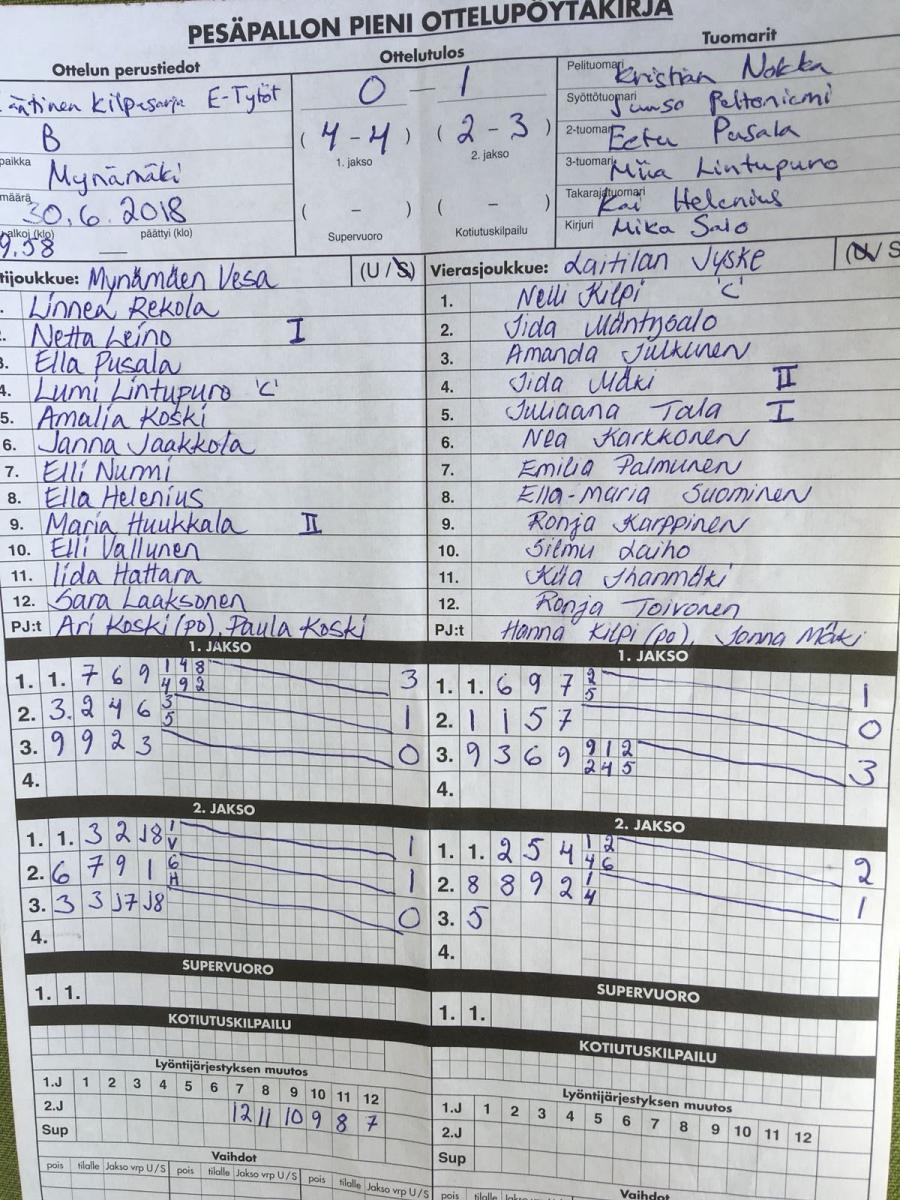 PESÄPALLON PIENI OTTELUPÖYTÄKIRJA
Ottelun perustiedot
äntinen Kilpasarja E-Tytöt
B
paikka
Mynämäki
määrä
30.6.2018
alkoi (klo) päättyi (klo)
9.58 —
Ottelutulos
0 — 1
(4-4) (2-3)
1. jakso 2. jakso
( - ) ( - )
Supervuoro Kotiutuskilpailu
Tuomarit
Pelituomari Kristian Nokka
Syöttötuomari Juuso Peltoniemi
2-tuomari Eetu Pusala
3-tuomari Miia Lintupuro
Takarajatuomari Kai Helenius
Kirjuri Mika Salo
tijoukkue: Mynämäen Vesa (U/S)
Linnea Rekola
Netta Leino I
3. Ella Pusala
4. Lumi Lintupuro 'C'
5. Amalia Koski
6. Janna Jaakkola
7. Elli Nurmi
8. Ella Helenius
9. Maria Huukkala II
10. Elli Vallunen
11. Iida Hattara
12. Sara Laaksonen
PJ:t Ari Koski (po), Paula Koski
Vierasjoukkue: Laitilan Jyske (U/S
1. Nelli Kilpi 'C'
2. Iida Mäntysalo
3. Amanda Julkunen
4. Iida Mäki II
5. Juliaana Tala I
6. Nea Karkkonen
7. Emilia Palmunen
8. Ella-Maria Suominen
9. Ronja Karppinen
10. Silmu Laiho
11. Kiia Ihanmäki
12. Ronja Toivonen
PJ:t Hanna Kilpi (po), Jonna Mäki
1. JAKSO
1. 1. 7 6 9 1 4 8 3
4 9 2
2. 3. 2 4 6 3 1
5
3. 9 9 2 3 0
4.
2. JAKSO
1. 1. 3 2 J8 1 1
V
2. 6 7 9 1 6 1
H
3. 3 3 J7 J8 0
4.
SUPERVUORO
1. 1.
KOTIUTUSKILPAILU
Lyöntijärjestyksen muutos
1.J 1 2 3 4 5 6 7 8 9 10 11 12
2.J 12 11 10 9 8 7
Sup
Vaihdot
pois tilalle Jakso vrp U/S pois tilalle Jakso vrp U/S pois tilalle Jakso vrp U/S
1. JAKSO
1. 1. 6 9 7 2 1
5
2. 1 1 5 7 0
3. 9 3 6 9 9 1 2 3
2 4 5
4.
2. JAKSO
1. 1. 2 5 4 1 2 2
4 6
2. 8 8 9 2 1 1
4
3. 5
4.
SUPERVUORO
1. 1.
KOTIUTUSKILPAILU
Lyöntijärjestyksen muutos
1.J 1 2 3 4 5 6 7 8 9 10 11 12
2.J
Sup
Vaihdot
pois tilalle Jakso vrp U/S